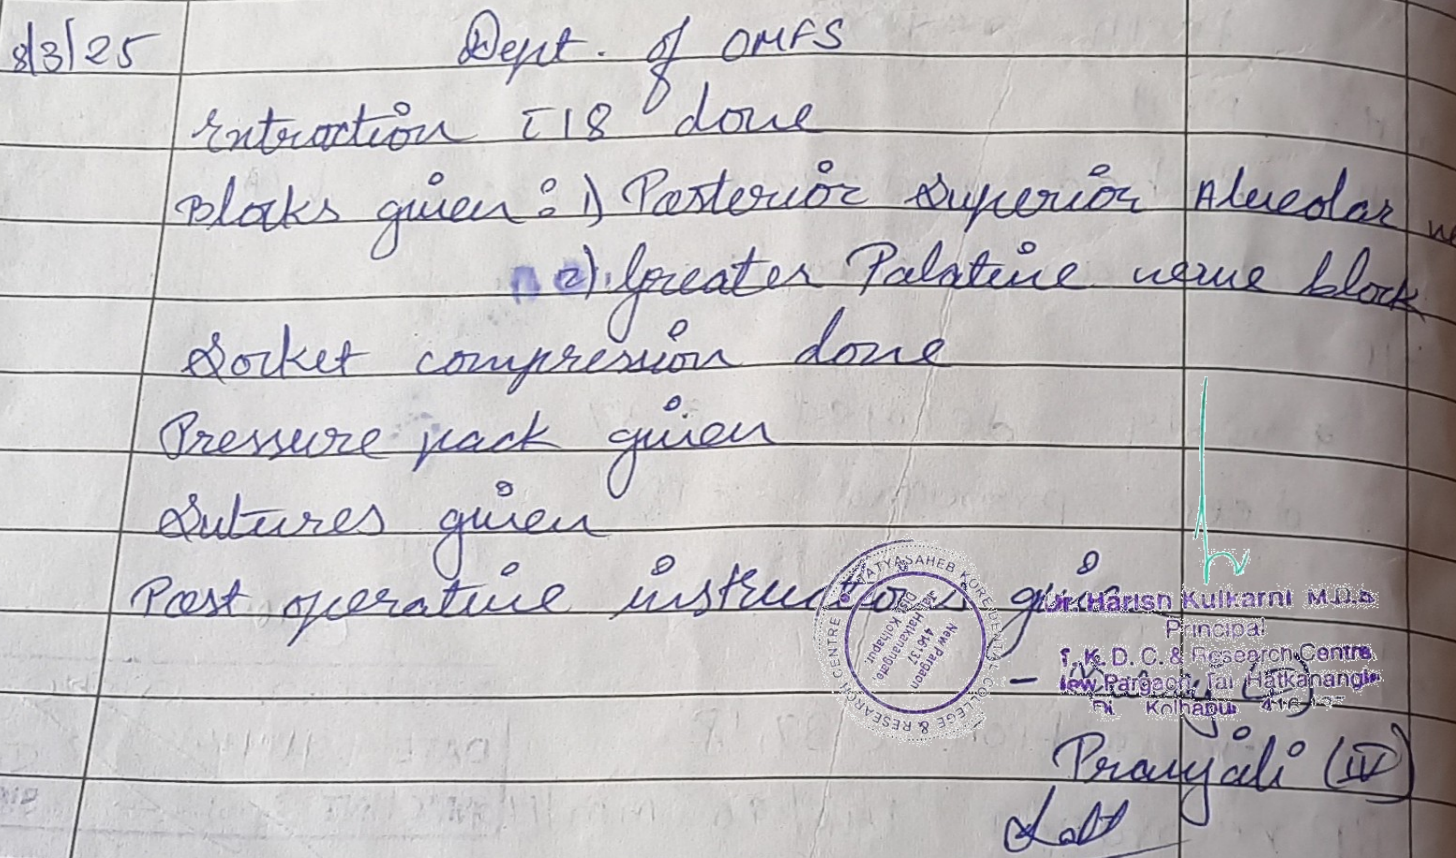 8/3/25 Dept. of OMFS
Extraction I 18 done
Blocks given: 1) Posterior Superior Alveolar
2) Greater Palatine nerve block
Socket compression done
Pressure pack given
Sutures given
Post operative instructions given
TATYASAHEB KORE DENTAL COLLEGE & RESEARCH CENTRE
New Pargaon
416 137
Tal Hatkanangale
Dist Kolhapur
Dr. Harish Kulkarni M.D.S
Principal
T. K. D. C. & Research Centre
New Pargaon, Tal Hatkanangle
Kolhapur
Pranjali (IV)